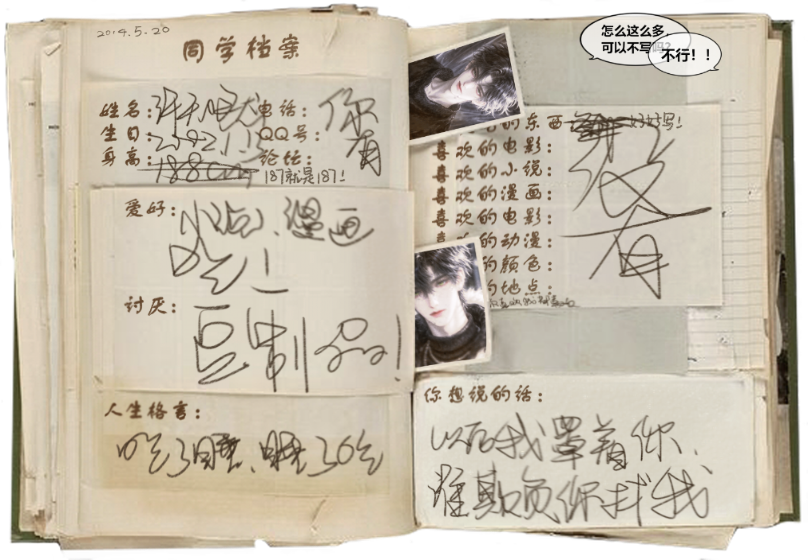 2014.5.20
同学档案
姓名：许
电话：你
生日：
QQ号：有
身高：188cm 187就是187！
论坛：
爱好：小说、漫画
吃！
讨厌：豆制品！
人生格言：
吃了睡、睡了吃
怎么这么多，
可以不写吗？
不行！！
的东西 好好写！
喜欢的电影：
喜欢的小说：
喜欢的漫画：没
喜欢的电影：
的动漫：有
的颜色：
的地点：
你想说的话：
以后我罩着你、
谁欺负你找我